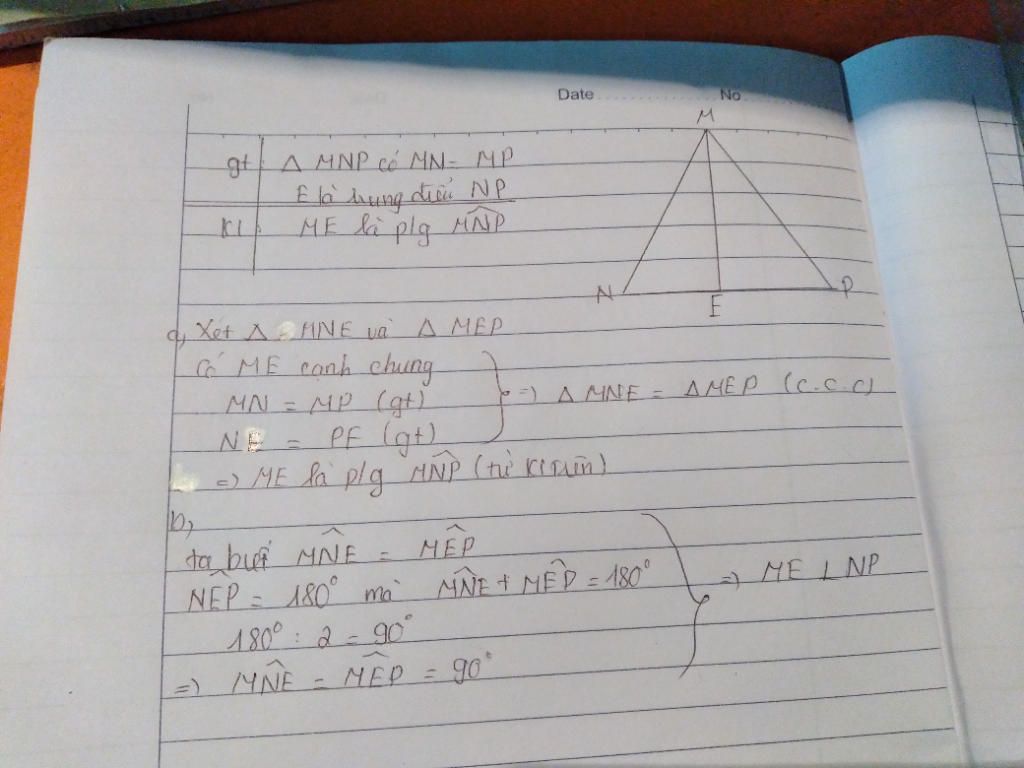 Date No
M
gt △ MNP có MN = MP
E là trung điểm NP
Kl ME là p/g M̂NP
N E P
a, Xét △ MNE và △ MEP
có ME cạnh chung
MN = MP (gt)
NE = PE (gt)
=> △ MNE = △ MEP (c.c.c)
=> ME là p/g MN̂P (từ
b,
ta biết MN̂E = MÊP
NÊP = 180° mà MN̂E + MÊP = 180°
180° : 2 = 90°
=> MN̂E = MÊP = 90°
=> ME ⊥ NP